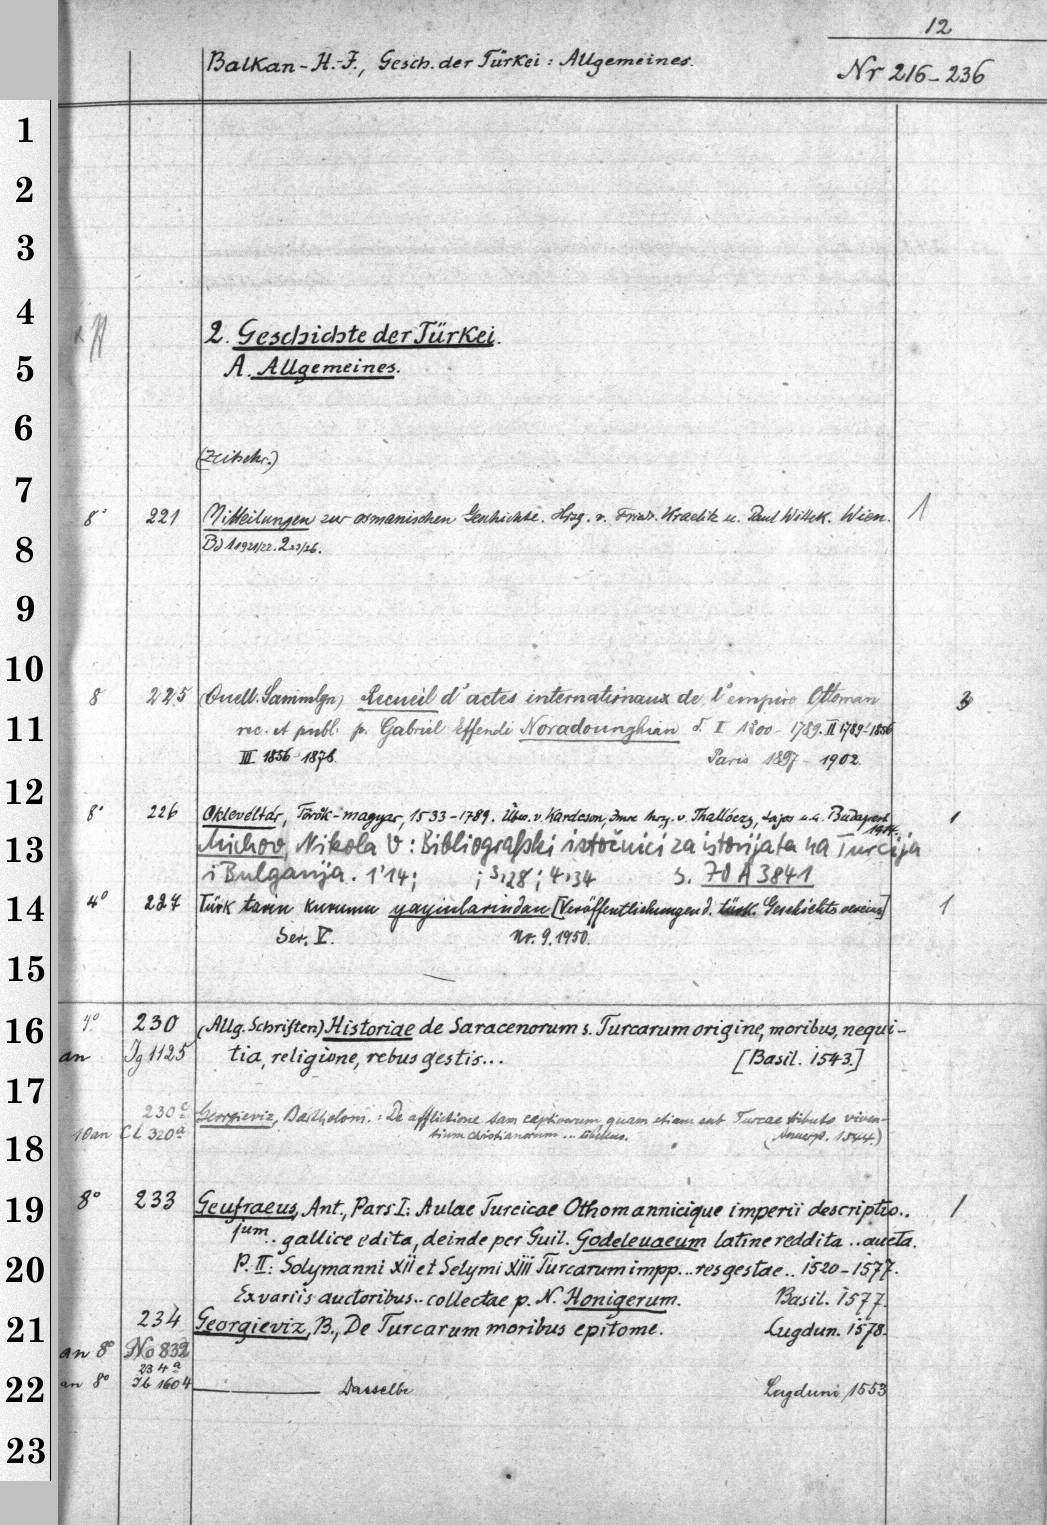 12
Balkan-H.-J., Gesch. der Türkei: Allgemeines.
Nr 216-236
1
2
3
4
2. Geschichte der Türkei.
5
A. Allgemeines.
6
(Zeitschr.)
7
8° 221 Mitteilungen zur osmanischen Geschichte. Hrsg. v. Fried. Kraelitz u. Paul Wittek. Wien. 1
8
Bd 1 1921/22. 2 23/26.
9
10
8 225 (Quell. Sammlgn) Recueil d'actes internationaux de l'empire Ottoman 3
11
rec. et publ. p. Gabriel Effendi Noradounghian I 1300-1789. II 1789-1856
III 1856-1878. Paris 1897-1902.
12
8° 226 Oklevéltár, Török-magyar, 1533-1789. v. Karácson, Imre hrsg. v. Thallóczy, Lajos u.a. Budapest 1914. 1
13
Michov, Nikola V: Bibliografski istočnici za istorijata na Turcija
i Bulganija. 1'14; ; 3,28; 4,34 s. 70 A 3841
14
4° 227 Türk tarin kurumu yayinlarindan [Veröffentlichungen d. türk. Geschichtsvereins] 1
Ser. V. Nr. 9. 1950.
15
16
4° 230 (Allg. Schriften) Historiae de Saracenorum s. Turcarum origine, moribus, nequi-
an Jg 1125 tia, religione, rebus gestis... [Basil. 1543.]
17
230 c Georgieviz, Bartholom.: De afflictione tam captivorum quam etiam sub Turcae tributo viven-
10an Cl 320 a tium christianorum ... libellus. (Antwerp. 1544.)
18
19
8° 233 Geufraeus, Ant., Pars I: Aulae Turcicae Othomannicique imperii descriptio.. 1
jum. gallice edita, deinde per Guil. Godelevaeum latine reddita .. aucta.
20
P. II: Solymanni XII et Selymi XIII Turcarum impp... res gestae.. 1520-1577.
Ex variis auctoribus.. collectae p. N. Honigerum. Basil. 1577.
21
234 Georgieviz, B., De Turcarum moribus epitome. Lugdun. 1578.
an 8° No 832
234 a
22
an 8° Jb 1604 Dasselbe Lugduni 1553
23